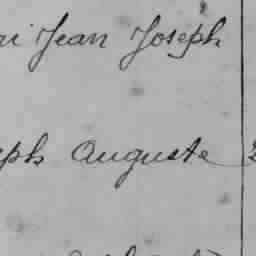 ri Jean Joseph
eph Auguste